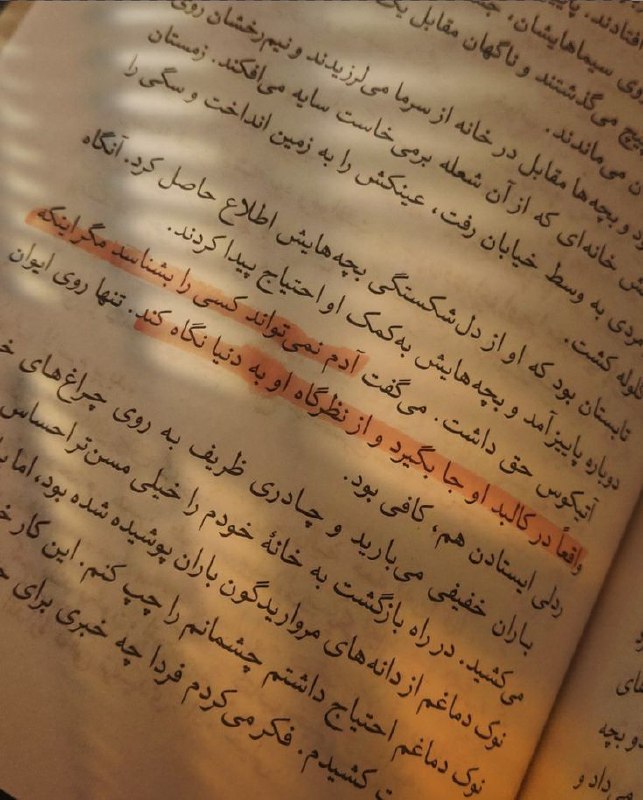 افتادند.
روی سیماهایشان،
می‌گذشتند و ناگهان مقابل یک
می‌ماندند.
و بچه‌ها مقابل در خانه از سرما می‌لرزیدند و نیم‌رخشان روی
خانه‌ای که از آن شعله برمی‌خاست سایه می‌افکند. زمستان
مردی به وسط خیابان رفت، عینکش را به زمین انداخت و سگی را
گلوله کشت.
تابستان بود که او از دل‌شکستگی بچه‌هایش اطلاع حاصل کرد. آنگاه
دوباره پاییز آمد و بچه‌هایش به‌کمک او احتیاج پیدا کردند.
آتیکوس حق داشت. می‌گفت آدم نمی‌تواند کسی را بشناسد مگر اینکه
واقعاً در کالبد او جا بگیرد و از نظرگاه او به دنیا نگاه کند. تنها روی ایوان
ردلی ایستادن هم، کافی بود.
باران خفیفی می‌بارید و چادری ظریف به روی چراغ‌های
می‌کشید. در راه بازگشت به خانهٔ خودم را خیلی مسن‌تر احساس
نوک دماغم از دانه‌های مرواریدگون باران پوشیده شده بود، اما
نوک دماغم احتیاج داشتم چشمانم را چپ کنم. این کار
کشیدم. فکر می‌کردم فردا چه خبری برای
های
دو بچه
می‌داد و